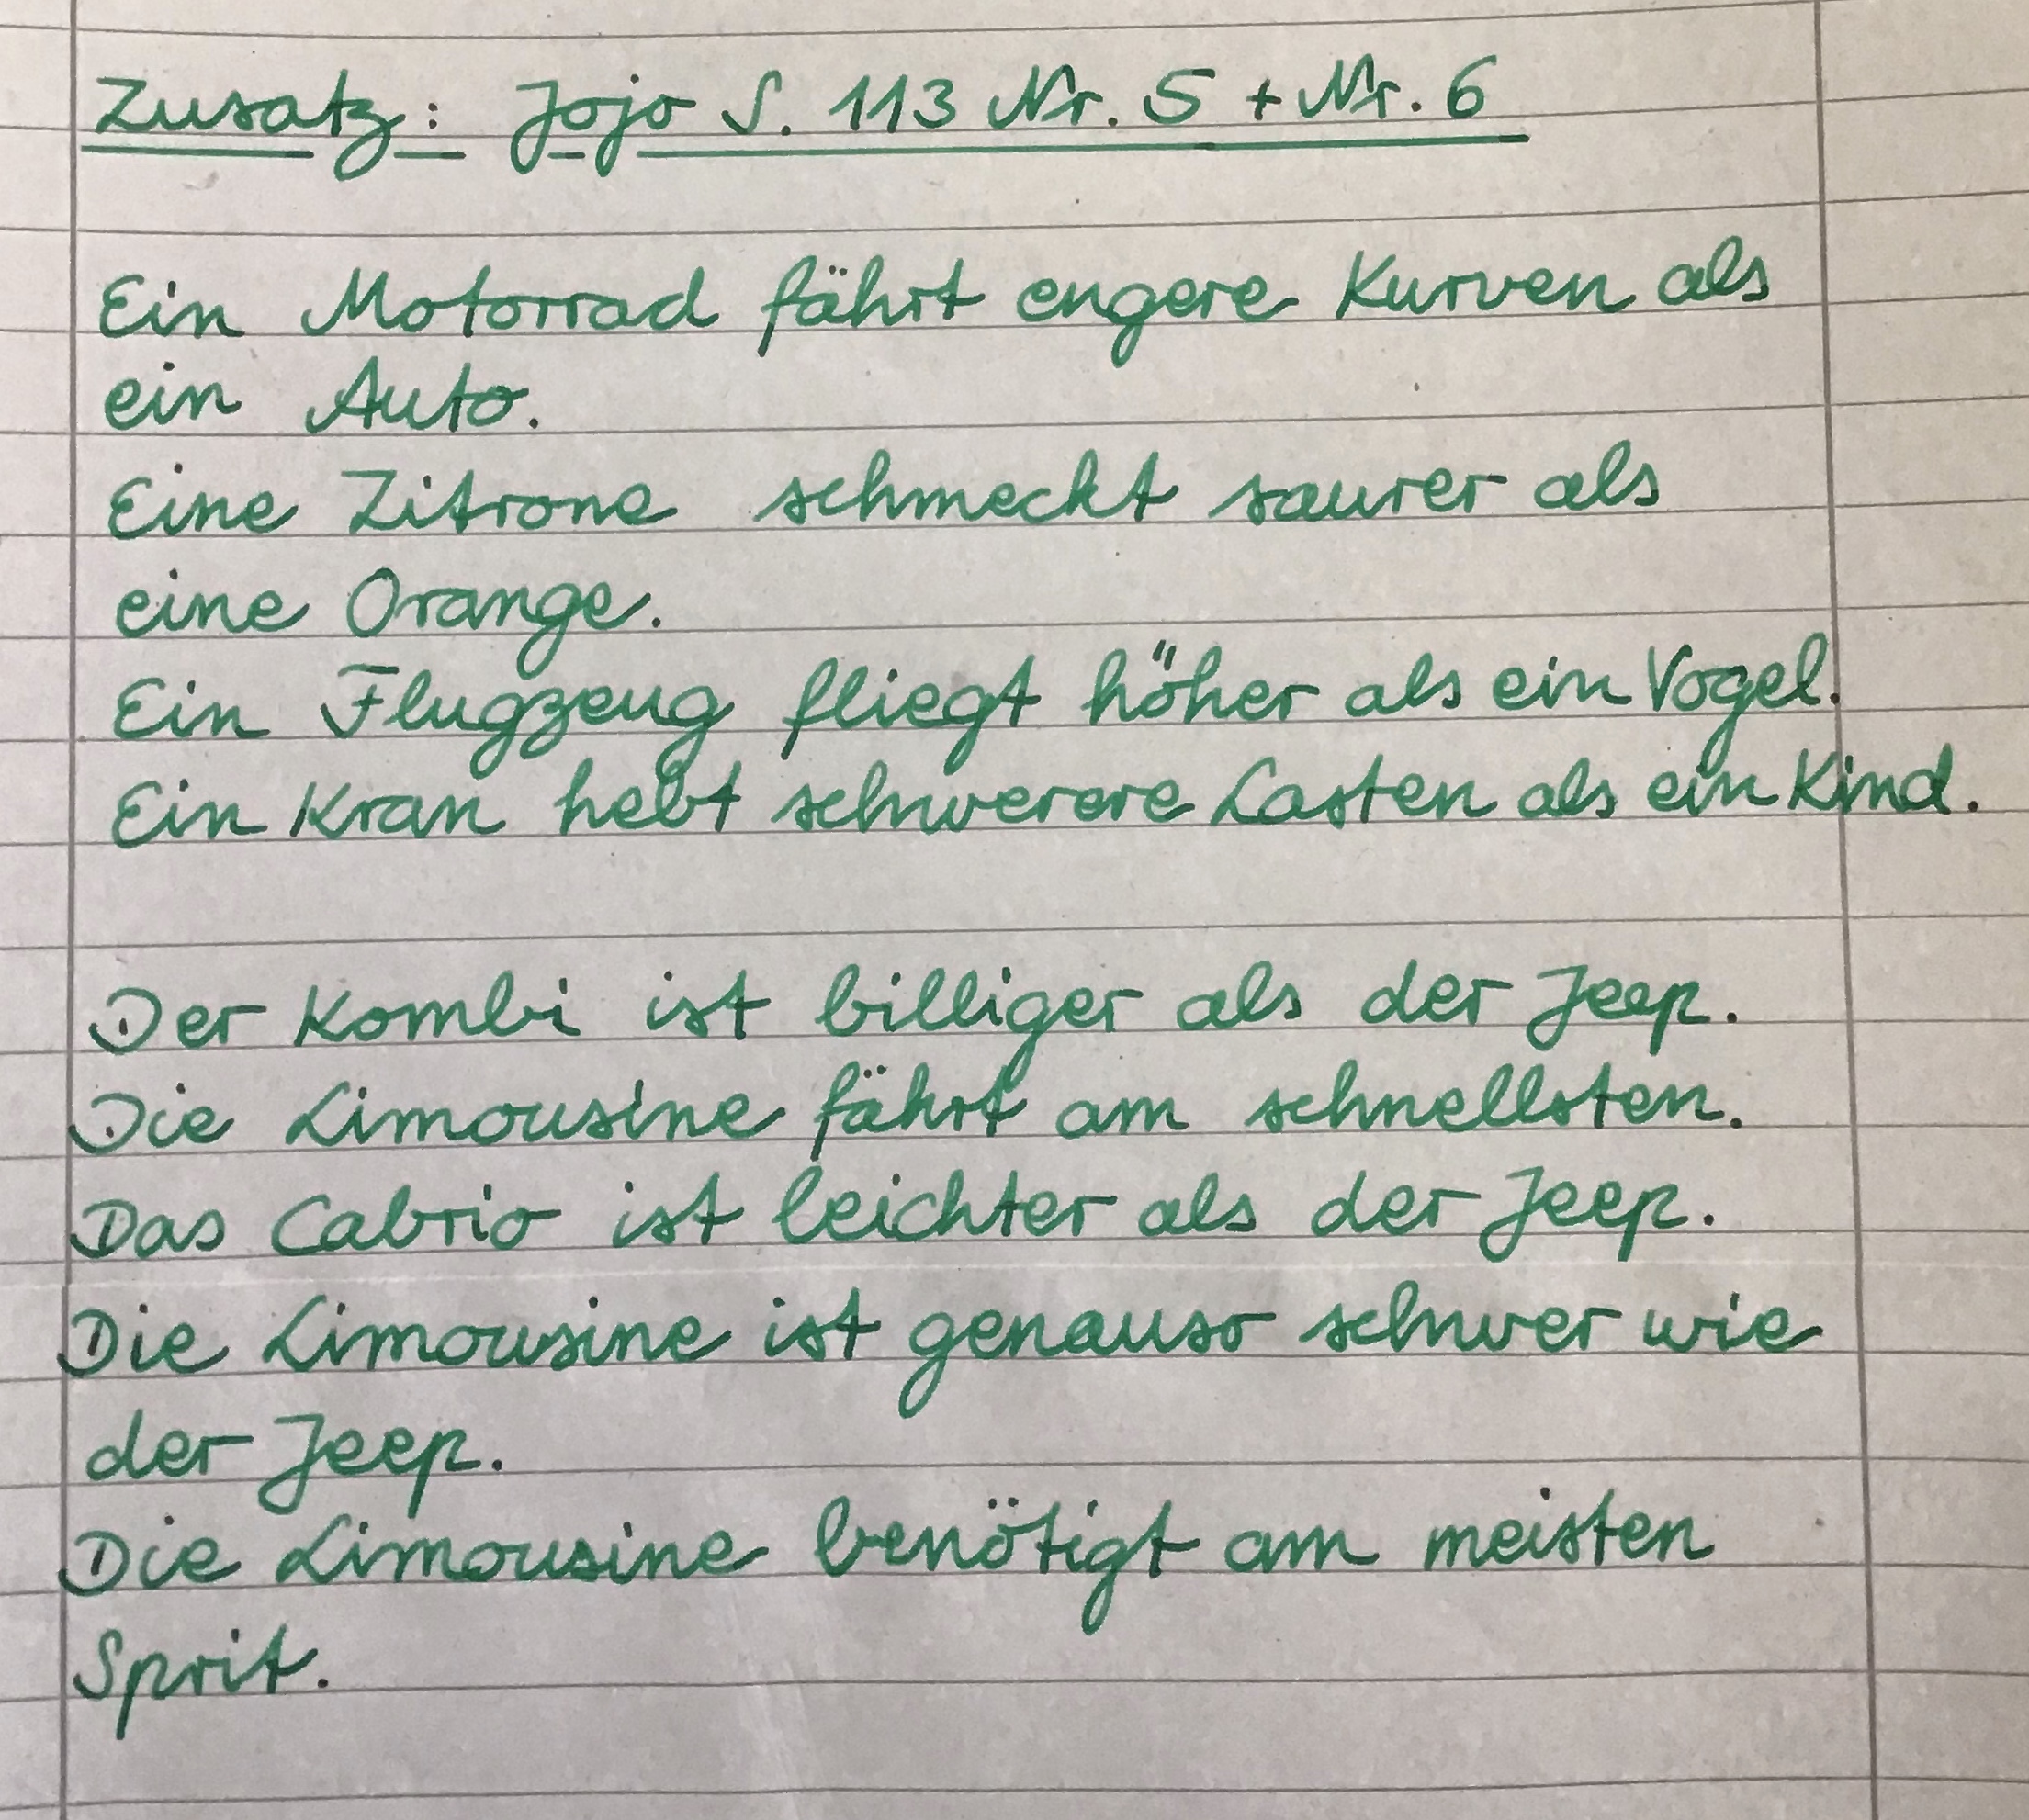 Zusatz: Jojo S. 113 Nr. 5 + Nr. 6
Ein Motorrad fährt engere Kurven als
ein Auto.
Eine Zitrone schmeckt saurer als
eine Orange.
Ein Flugzeug fliegt höher als ein Vogel.
Ein Kran hebt schwerere Lasten als ein Kind.
Der Kombi ist billiger als der Jeep.
Die Limousine fährt am schnellsten.
Das Cabrio ist leichter als der Jeep.
Die Limousine ist genauso schwer wie
der Jeep.
Die Limousine benötigt am meisten
Sprit.